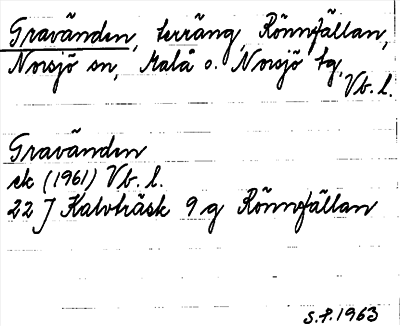 Gravänden, terräng, Rönnfällan,
Norsjö sn, Malå o. Norsjö tg,
Vb. l.
Gravänden
ek (1961) Vb. l.
22 J Kalvträsk 9 g Rönnfällan
S.F. 1963